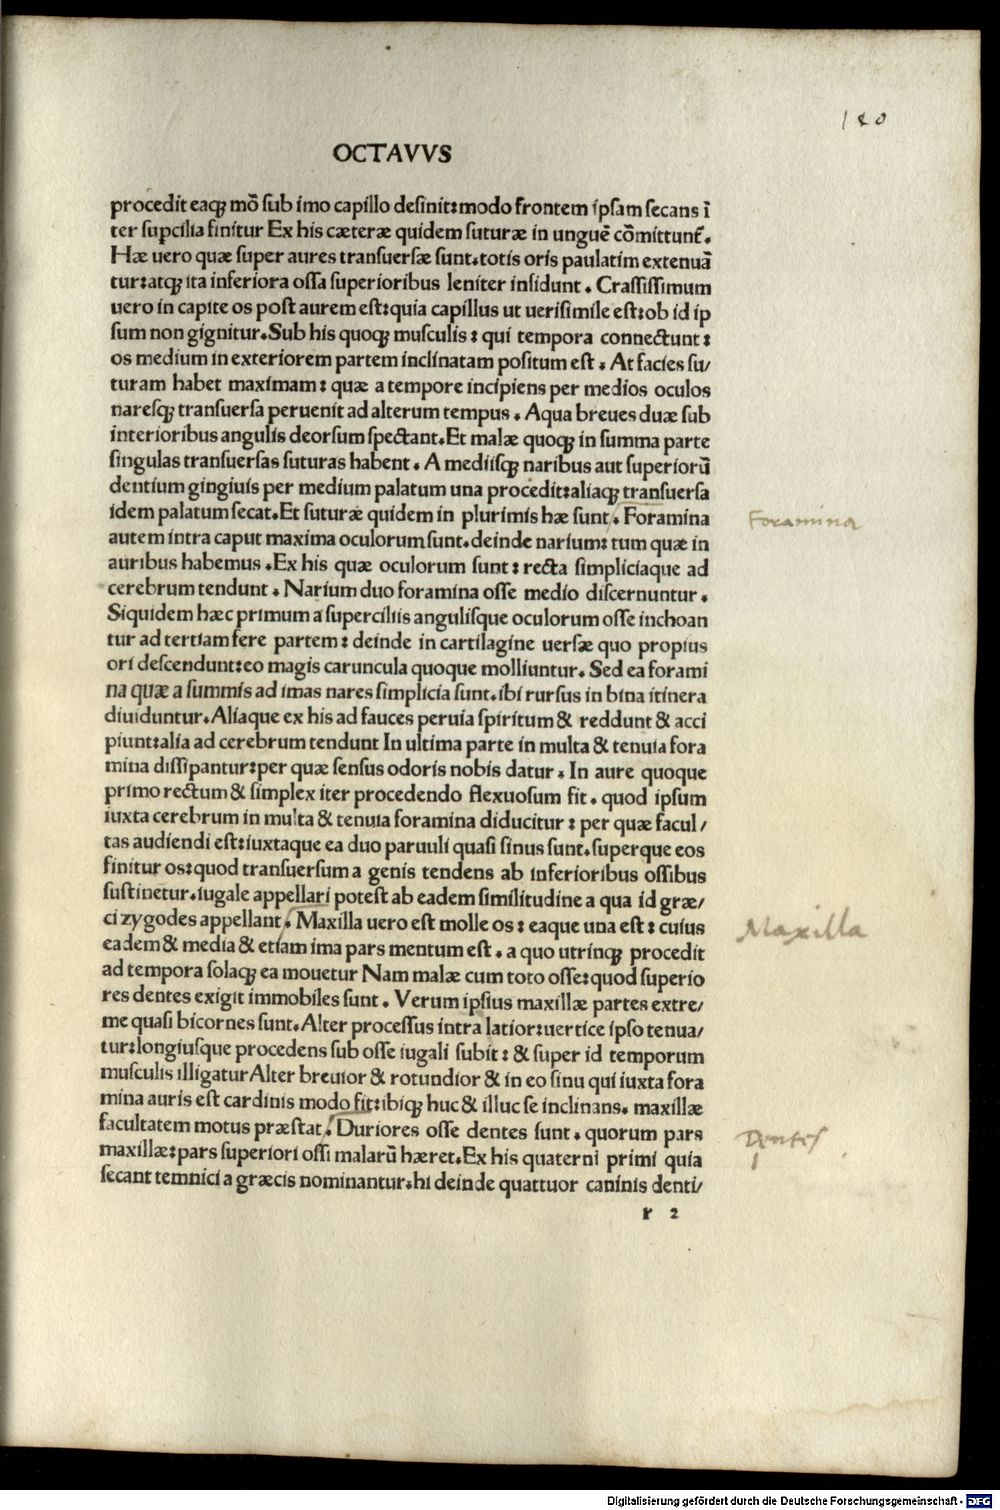 180
OCTAVVS
procedit eaqꝫ mõ ſub imo capillo deſinit:modo frontem ipſam ſecans ĩ
ter ſupcilia finitur Ex his cæteræ quidem ſuturæ in unguẽ cõmittunt᷑.
Hæ uero quæ ſuper aures tranſuerſæ ſunt.totis oris paulatim extenuã
tur:atqꝫ ita inferiora oſſa ſuperioribus leniter inſidunt. Craſſiſſimum
uero in capite os poſt aurem eſt:quia capillus ut ueriſimile eſt:ob id ip
ſum non gignitur.Sub his quoqꝫ muſculis: qui tempora connectunt:
os medium in exteriorem partem inclinatam poſitum eſt. At facies ſu/
turam habet maximam: quæ a tempore incipiens per medios oculos
nareſqꝫ tranſuerſa peruenit ad alterum tempus. Aqua breues duæ ſub
interioribus angulis deorſum ſpectant.Et malæ quoqꝫ in ſumma parte
ſingulas tranſuerſas ſuturas habent. A mediiſqꝫ naribus aut ſuperiorũ
dentium gingiuis per medium palatum una procedit:aliaqꝫ tranſuerſa
idem palatum ſecat.Et ſuturæ quidem in plurimis hæ ſunt. Foramina
Foramina
autem intra caput maxima oculorum ſunt.deinde narium: tum quæ in
auribus habemus. Ex his quæ oculorum ſunt: recta ſimpliciaque ad
cerebrum tendunt. Narium duo foramina oſſe medio diſcernuntur.
Siquidem hæc primum a ſuperciliis anguliſque oculorum oſſe inchoan
tur ad tertiam fere partem: deinde in cartilagine uerſæ quo propius
ori deſcendunt:eo magis caruncula quoque molliuntur. Sed ea forami
na quæ a ſummis ad imas nares ſimplicia ſunt.ibi rurſus in bina itinera
diuiduntur.Aliaque ex his ad fauces peruia ſpiritum & reddunt & acci
piunt:alia ad cerebrum tendunt In ultima parte in multa & tenuia fora
mina diſſipantur:per quæ ſenſus odoris nobis datur. In aure quoque
primo rectum & ſimplex iter procedendo flexuoſum fit. quod ipſum
iuxta cerebrum in multa & tenuia foramina diducitur: per quæ facul/
tas audiendi eſt:iuxtaque ea duo paruuli quaſi ſinus ſunt.ſuperque eos
finitur os:quod tranſuerſum a genis tendens ab inferioribus oſſibus
ſuſtinetur.iugale appellari poteſt ab eadem ſimilitudine a qua id græ/
ci zygodes appellant. Maxilla uero eſt molle os: eaque una eſt: cuius
Maxilla
eadem & media & etiam ima pars mentum eſt. a quo utrinqꝫ procedit
ad tempora ſolaqꝫ ea mouetur Nam malæ cum toto oſſe:quod ſuperio
res dentes exigit immobiles ſunt. Verum ipſius maxillæ partes extre/
me quaſi bicornes ſunt.Alter proceſſus intra latior:uertice ipſo tenua/
tur:longiuſque procedens ſub oſſe iugali ſubit: & ſuper id temporum
muſculis illigatur Alter breuior & rotundior & in eo ſinu qui iuxta fora
mina auris eſt cardinis modo fit:ibiqꝫ huc & illuc ſe inclinans. maxillæ
facultatem motus præſtat. Duriores oſſe dentes ſunt. quorum pars
Dentes
maxillæ:pars ſuperiori oſſi malarũ hæret.Ex his quaterni primi quia
ſecant temnici a græcis nominantur.hi deinde quattuor caninis denti/
r 2
Digitalisierung gefördert durch die Deutsche Forschungsgemeinschaft - DFG